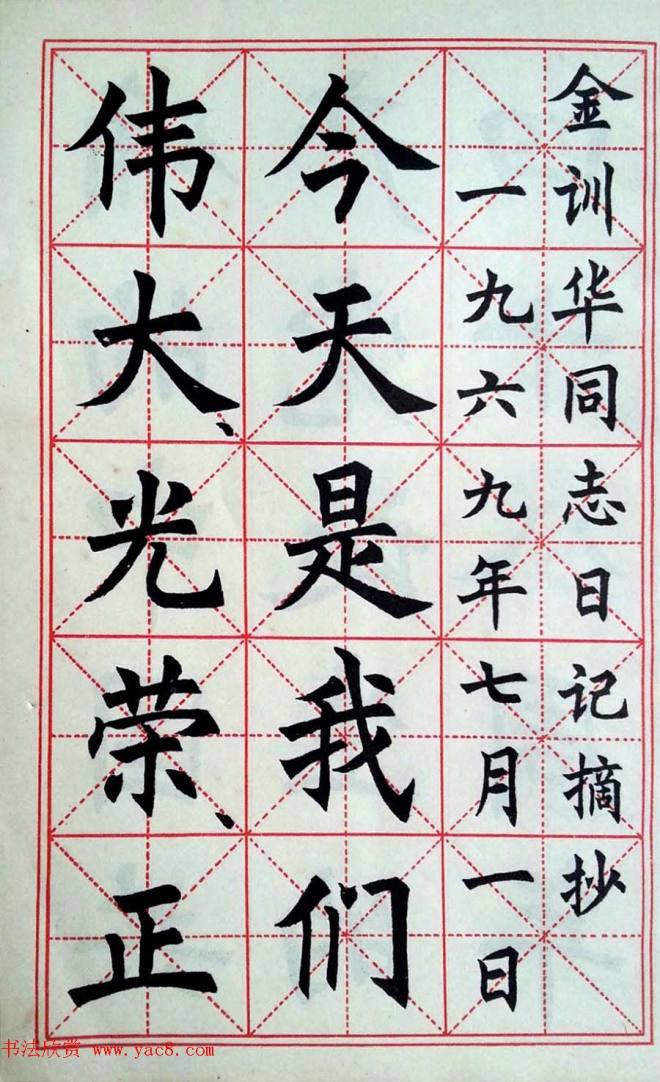 金训华同志日记摘抄
一九六九年七月一日
今天是我们
伟大、光荣、正
书法欣赏 www.yac8.com